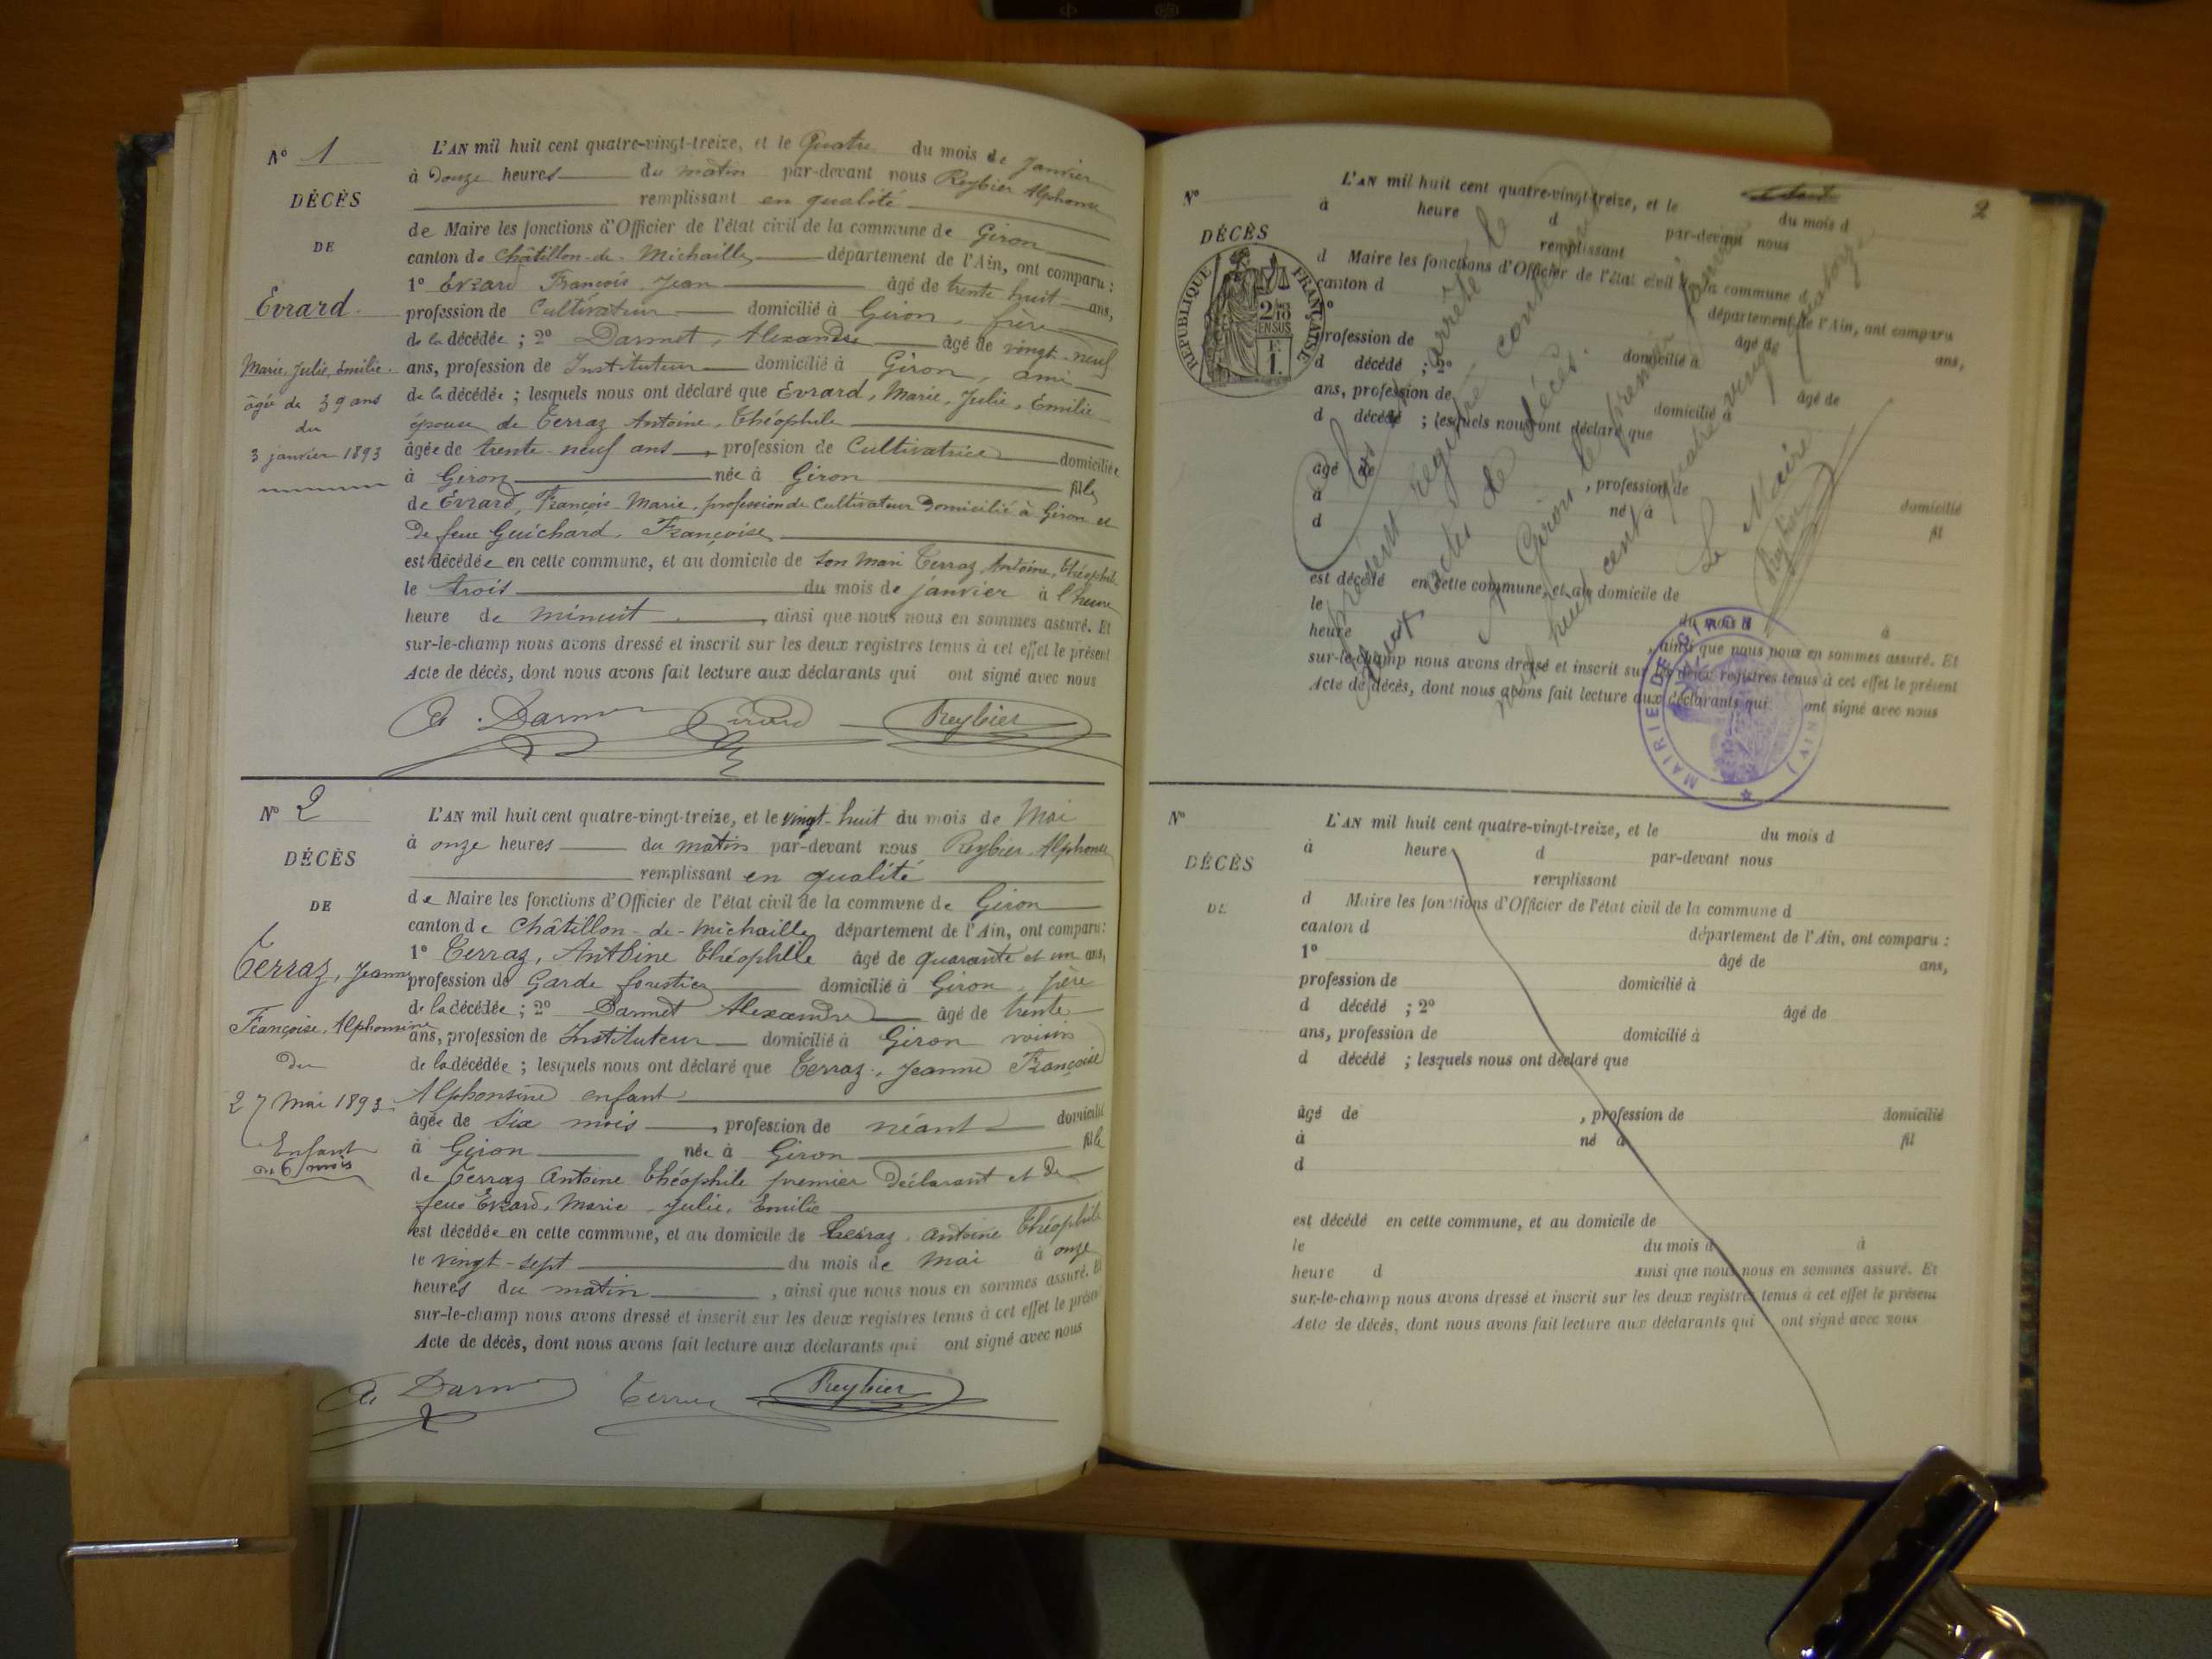 N° 1
DÉCÈS
DE
Evrard.
Marie, Julie, Emilie.
âgée de 39 ans
du
3 janvier 1893
L'AN mil huit cent quatre-vingt-treize, et le Quatre du mois de Janvier
à Douze heures du matin par-devant nous Reybier Alphonse
remplissant en qualité
de Maire les fonctions d'Officier de l'état civil de la commune de Giron
canton de Châtillon-de-Michaille département de l'Ain, ont comparu :
1° Evrard François Jean âgé de trente huit ans,
profession de Cultivateur domicilié à Giron, frère
de la décédée ; 2° Darmet, Alexandre âgé de vingt-neuf
ans, profession de Instituteur domicilié à Giron, ami
de la décédée ; lesquels nous ont déclaré que Evrard, Marie, Julie, Emilie
épouse de Terraz Antoine, Théophile
âgée de trente-neuf ans, profession de Cultivatrice domiciliée
à Giron née à Giron fille
de Evrard, François, Marie, profession de Cultivateur Domicilié à Giron et
De feue Guichard, Françoise
est décédée en cette commune, et au domicile de son mari Terraz Antoine, Théophile
le trois du mois de janvier à l'heure
heure de minuit, ainsi que nous nous en sommes assuré. Et
sur-le-champ nous avons dressé et inscrit sur les deux registres tenus à cet effet le présent
Acte de décès, dont nous avons fait lecture aux déclarants qui ont signé avec nous
A. Darmet Evrard Reybier
N° 2
DÉCÈS
DE
Terraz, Jeanne
Françoise, Alphonsine
du
27 Mai 1893
Enfant
de 6 mois
L'AN mil huit cent quatre-vingt-treize, et le vingt-huit du mois de Mai
à onze heures du matin par-devant nous Reybier, Alphonse
remplissant en qualité
de Maire les fonctions d'Officier de l'état civil de la commune de Giron
canton de Châtillon-de-Michaille département de l'Ain, ont comparu :
1° Terraz, Antoine Théophile âgé de quarante et un ans,
profession de Garde forestier domicilié à Giron, père
de la décédée ; 2° Darmet Alexandre âgé de trente
ans, profession de Instituteur domicilié à Giron voisin
de la décédée ; lesquels nous ont déclaré que Terraz, Jeanne Françoise
Alphonsine enfant
âgée de six mois, profession de néant domicilié
à Giron née à Giron fille
de Terraz Antoine Théophile premier Déclarant et De
feue Evrard, Marie, Julie, Emilie
est décédée en cette commune, et au domicile de Terraz, Antoine Théophile
le vingt-sept du mois de Mai à onze
heures du matin, ainsi que nous nous en sommes assuré. Et
sur-le-champ nous avons dressé et inscrit sur les deux registres tenus à cet effet le présent
Acte de décès, dont nous avons fait lecture aux déclarants qui ont signé avec nous
A. Darmet Terraz Reybier
2
N°
DÉCÈS
RÉPUBLIQUE FRANÇAISE
2/10 EN SUS
F. 1.
L'AN mil huit cent quatre-vingt-treize, et le du mois d
à heure d par-devant nous
remplissant
d Maire les fonctions d'Officier de l'état civil de la commune d
canton d département de l'Ain, ont comparu
1° âgé de ans,
profession de domicilié à
d décédé ; 2° âgé de
ans, profession de domicilié à
d décédé ; lesquels nous ont déclaré que
âgé de , profession de domicilié
à né à fil
d
est décédé en cette commune, et au domicile de
le du mois d à
heure , ainsi que nous nous en sommes assuré. Et
sur-le-champ nous avons dressé et inscrit sur les deux registres tenus à cet effet le présent
Acte de décès, dont nous avons fait lecture aux déclarants qui ont signé avec nous
Clos et arrêté le
présent registre contenant
deux actes de décès.
A Giron le premier janvier
mil huit cent quatre vingt quatorze
Le Maire
Reybier
MAIRIE DE GIRON (AIN)
N°
DÉCÈS
DE
L'AN mil huit cent quatre-vingt-treize, et le du mois d
à heure d par-devant nous
remplissant
d Maire les fonctions d'Officier de l'état civil de la commune d
canton d département de l'Ain, ont comparu :
1° âgé de ans,
profession de domicilié à
d décédé ; 2° âgé de
ans, profession de domicilié à
d décédé ; lesquels nous ont déclaré que
âgé de , profession de domicilié
à né à fil
d
est décédé en cette commune, et au domicile de
le du mois d à
heure d ainsi que nous nous en sommes assuré. Et
sur-le-champ nous avons dressé et inscrit sur les deux registres tenus à cet effet le présent
Acte de décès, dont nous avons fait lecture aux déclarants qui ont signé avec nous